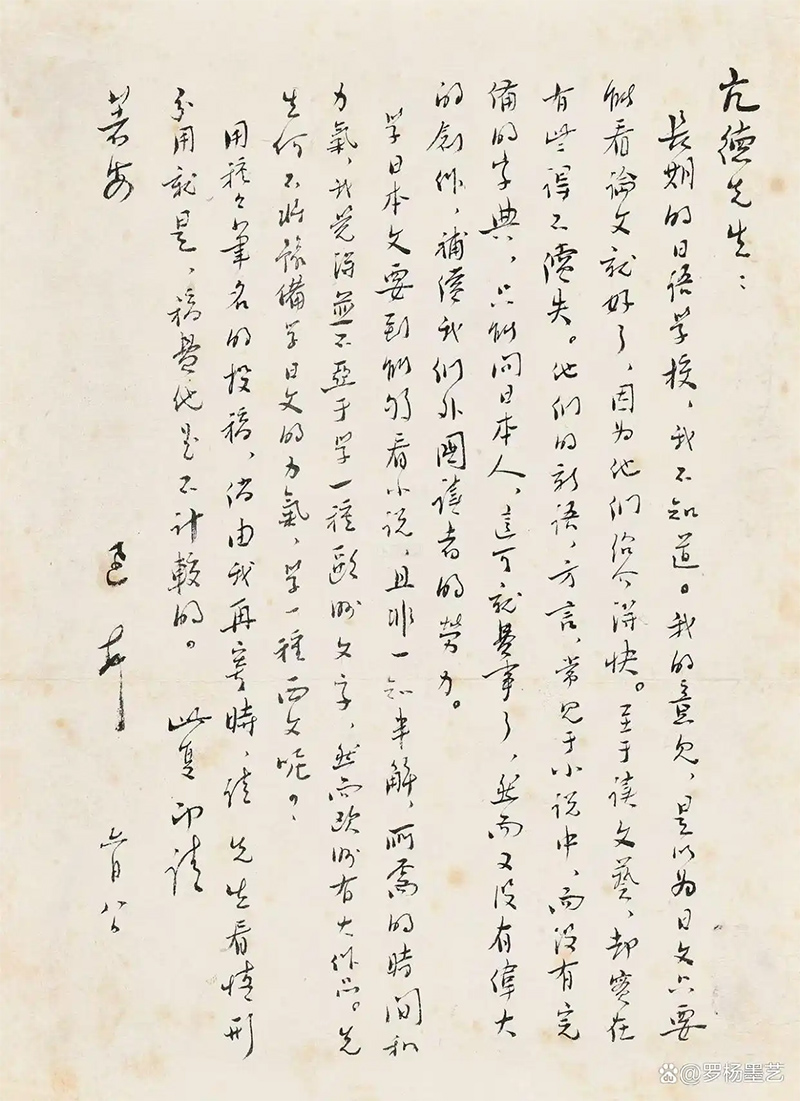 亢德先生：
長期的日語學校，我不知道。我的意見，是以為日文只要
能看論文就好了，因为他們紹介得快。至于讀文藝，却實在
有些得不償失。他們的新語，方言，常見于小說中，而沒有完
備的字典，只能問日本人，這可就費事了，然而又沒有偉大
的創作，補償我們外國讀者的勞力。
學日本文要到能夠看小說，且非一知半解，所需的時間和
力氣，我覺得並不亞于學一種歐洲文字，然而歐洲有大作品。先
生何不將豫備學日文的力氣，學一種西文呢？
用種々筆名的投稿，倘由我再寄時，請 先生看情形
分用就是，稿費他是不計較的。 此复 即請
著安
迅 六月八日
Bai du @罗杨墨艺